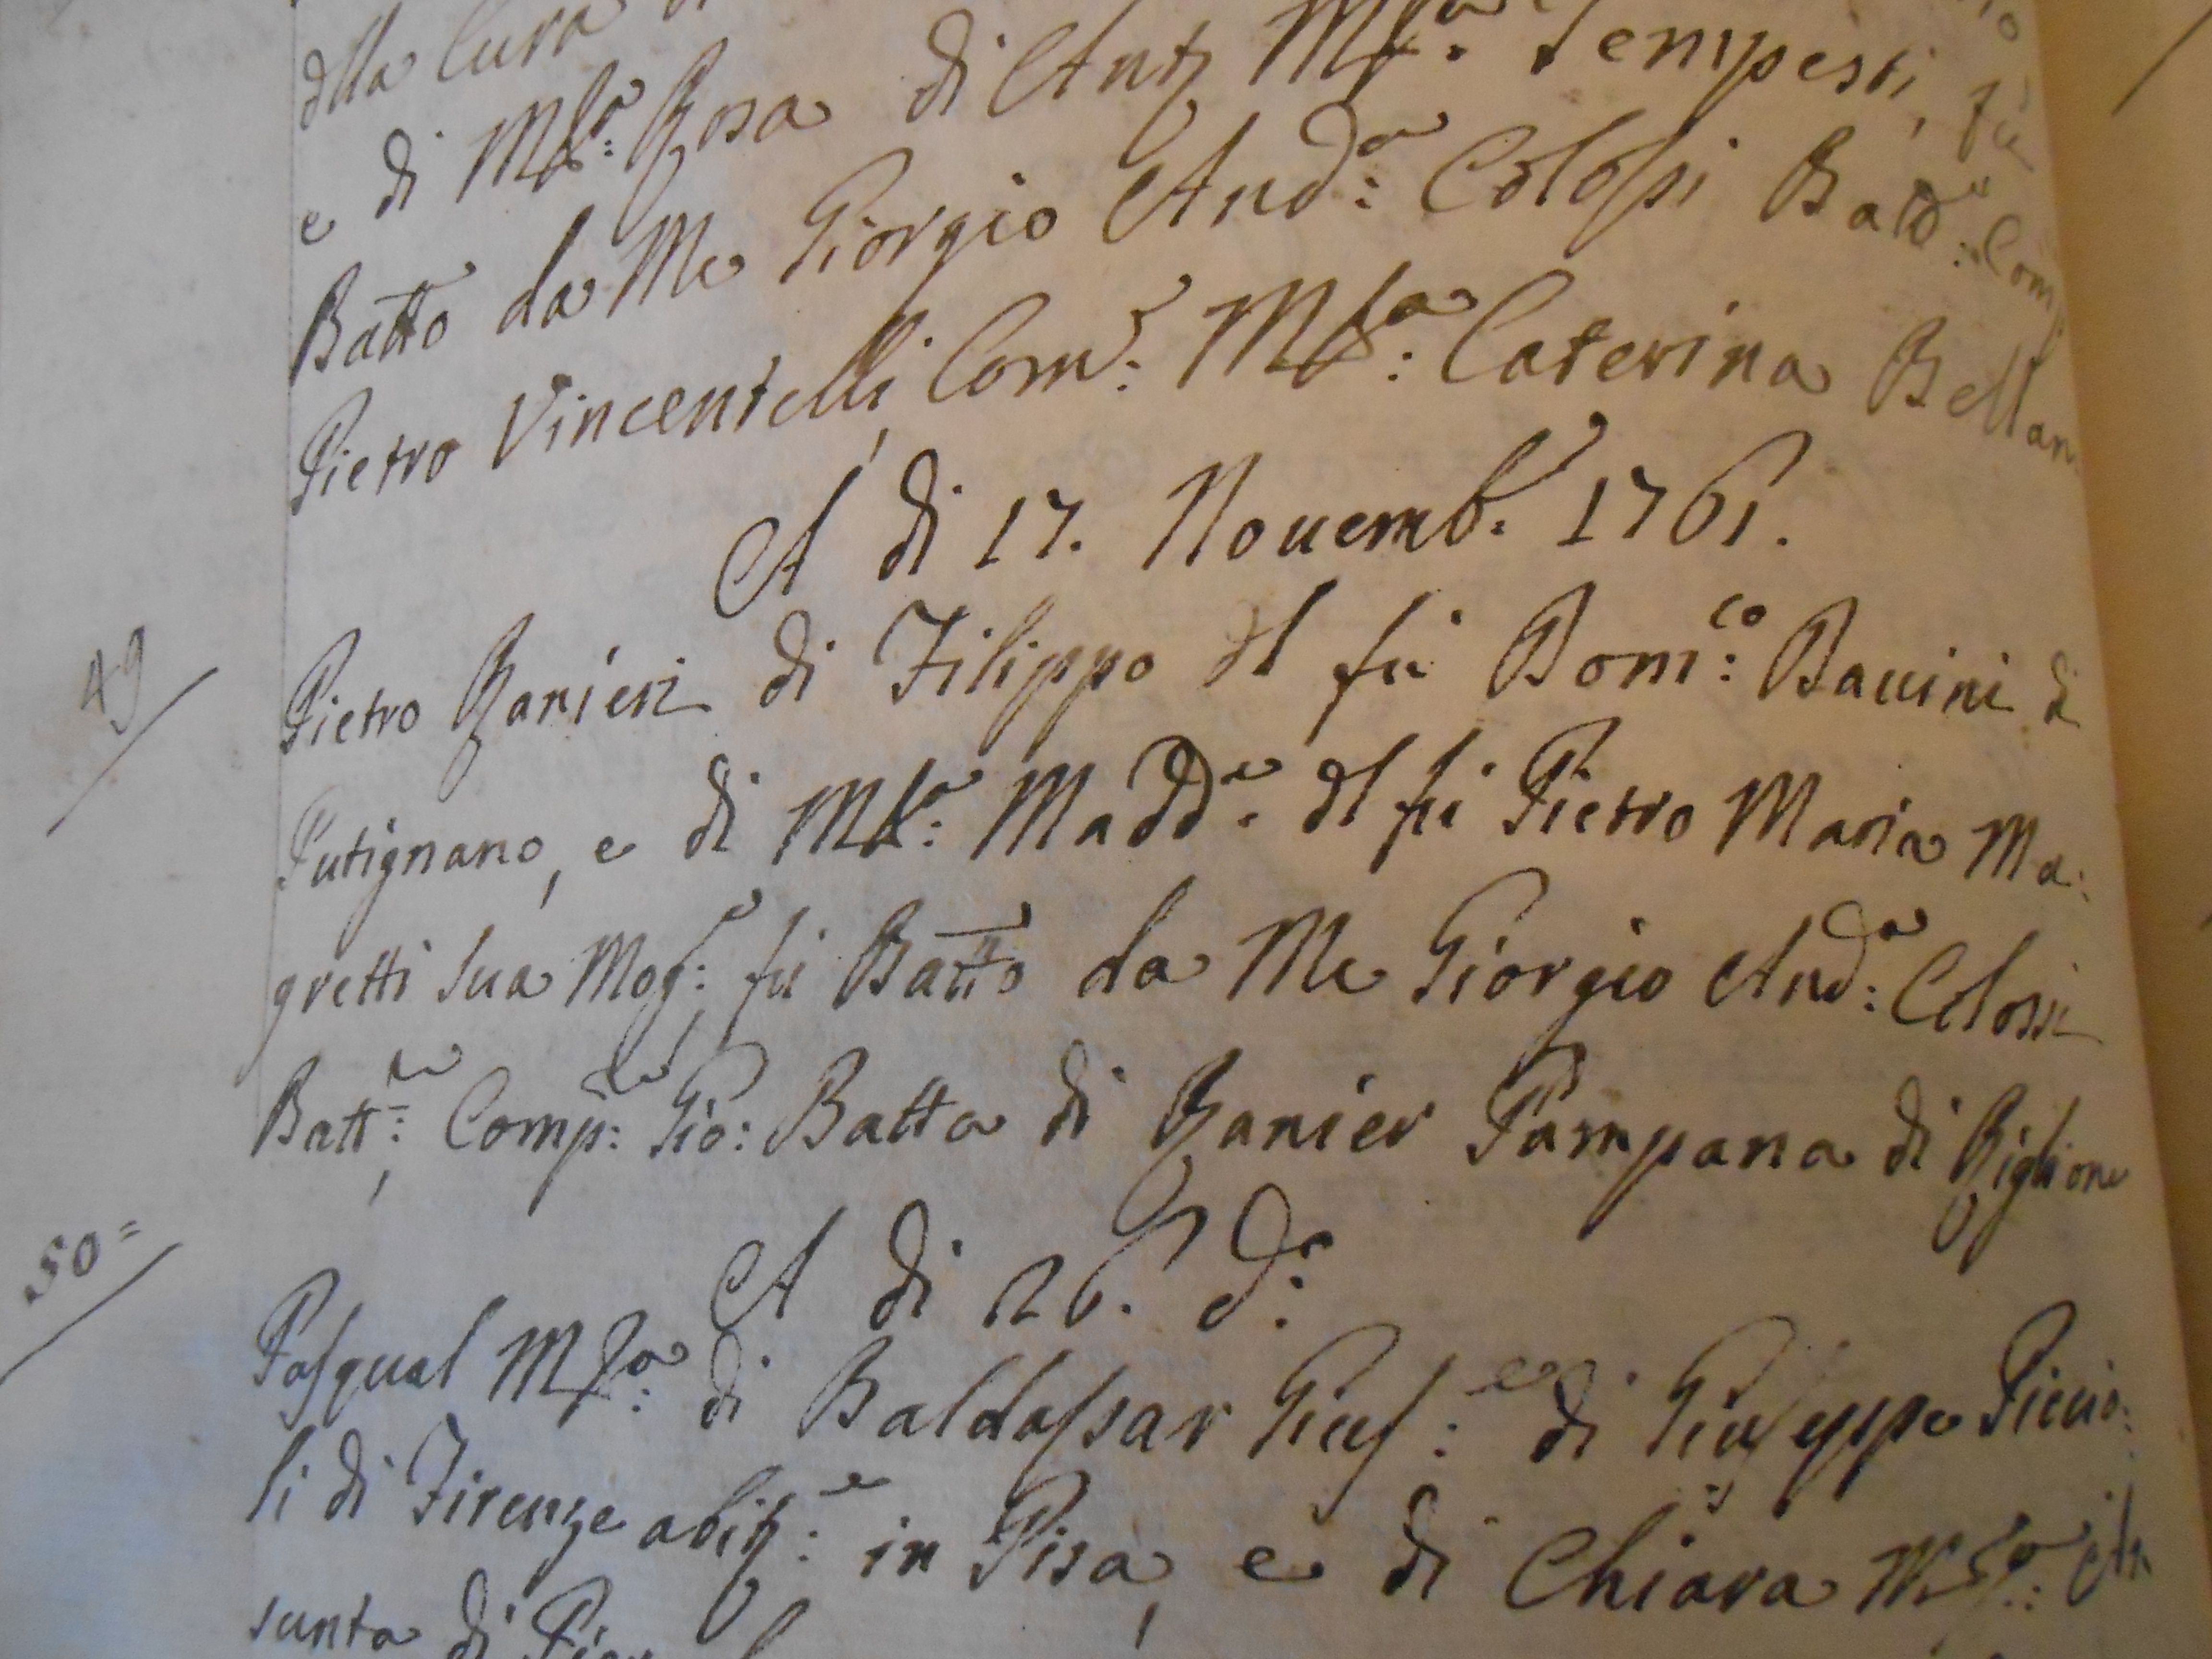 dlla Cura
e di Mſa: Rosa di Ant: Mſa: Tempesti, fu
Batto da Me Giorgio Anda: Colossi Batt: Com
Pietro Vincentelli, Com: Mſa: Caterina Bellan
A di 17. Nouemb: 1761.
49
Pietro Ranieri di Filippo dl fù Domco: Bauini di
Putignano, e di Mſa: Madda: dl fù Pietro Maria Ma:
gretti sua Moge:, fù Batto da Me Giorgio Anda: Colossi
Batte:, Compe: Gio: Batta di Ranier Pampana di Riglione
50=
A di 26. do:
Pasqual Mſa: di Baldassar Giuse: di Giuseppe Piccio:
li di Firenze abite: in Pisa, e di Chiara Mſa: As
sunta di